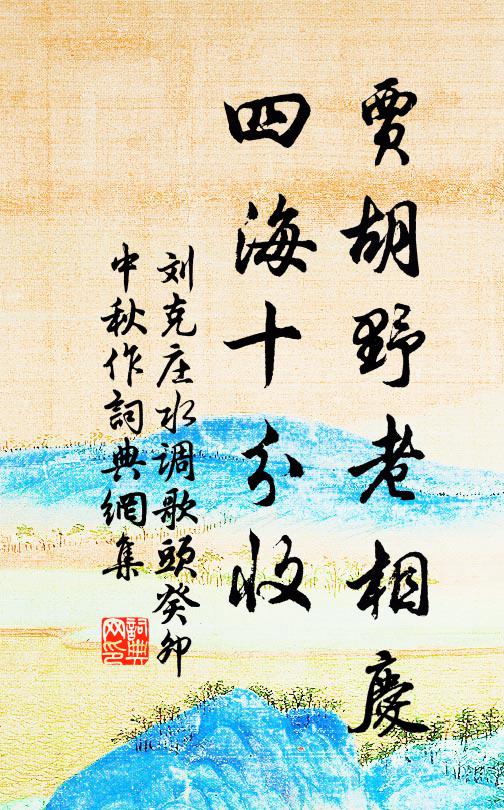 賈胡野老相慶
四海十分收
刘克庄水调歌頭癸卯
中秋作詞典網集
詞典网印